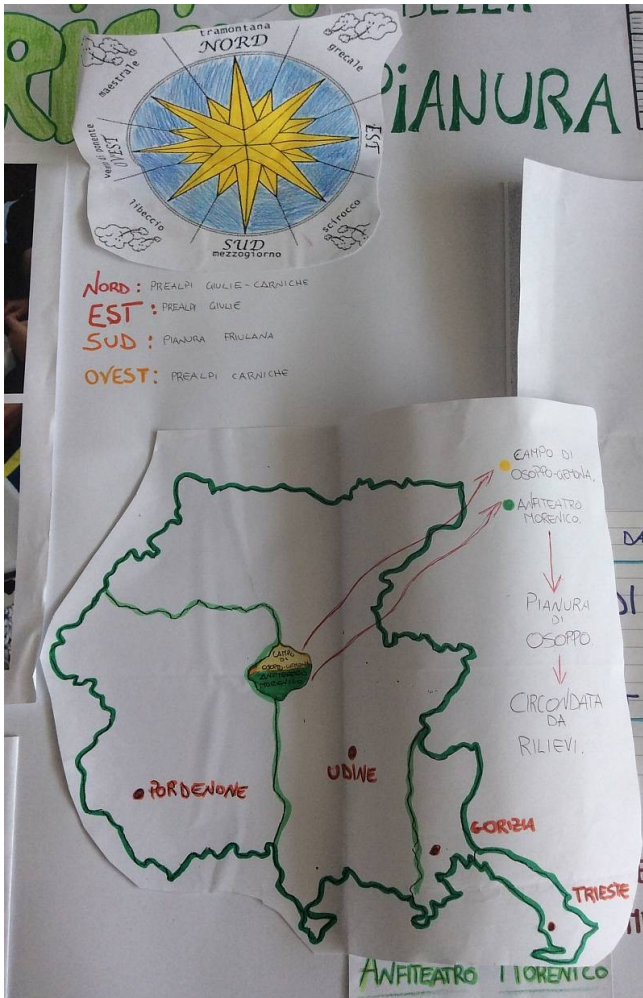 DELLA
PIANURA
tramontana
NORD
grecale
maestrale
EST
OVEST
libeccio
scirocco
SUD
mezzogiorno
NORD: PREALPI GIULIE-CARNICHE
EST: PREALPI GIULIE
SUD: PIANURA FRIULANA
OVEST: PREALPI CARNICHE
CAMPO DI
OSOPPO-GEMONA.
ANFITEATRO
MORENICO.
PIANURA
DI
OSOPPO
CIRCONDATA
DA
RILIEVI.
CAMPO
DI
OSOPPO-GEMONA
ANFITEATRO
MORENICO
UDINE
PORDENONE
GORIZIA
TRIESTE
ANFITEATRO MORENICO